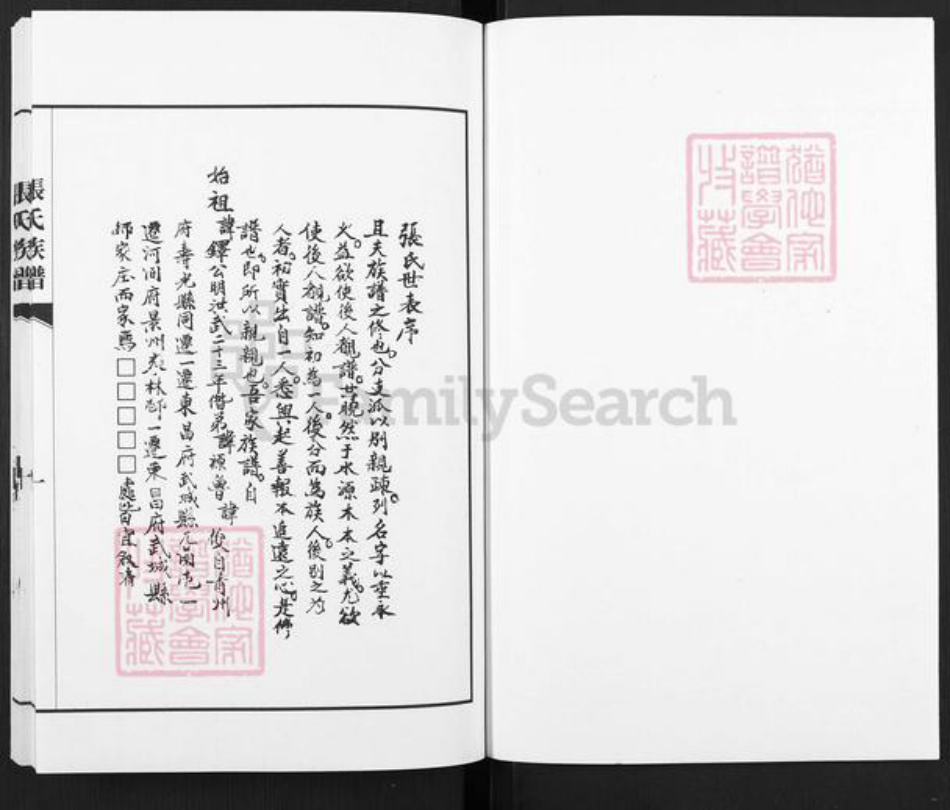 張氏世表序
且夫族譜之修也分支派以別親疎列名字以垂永
久益欲使後人觀譜世曉然于水源木本之義尤欲
使後人觀譜知初為一人後分而為族人後別之為
人者初實出自一人悉興起善報本追遠之心是修
譜也即所以親親也吾家族譜自
始祖諱鐸公明洪武二十三年偕弟諱禎魯諱俊自青州
府壽光縣同遷一遷東昌府武城縣屯一
遷河间府景州林一遷東昌府武城縣
家庄而家焉□□□□□處皆宜敘者
張氏族譜
一
猶他家譜學會收藏
猶他家譜學會收藏
FamilySearch